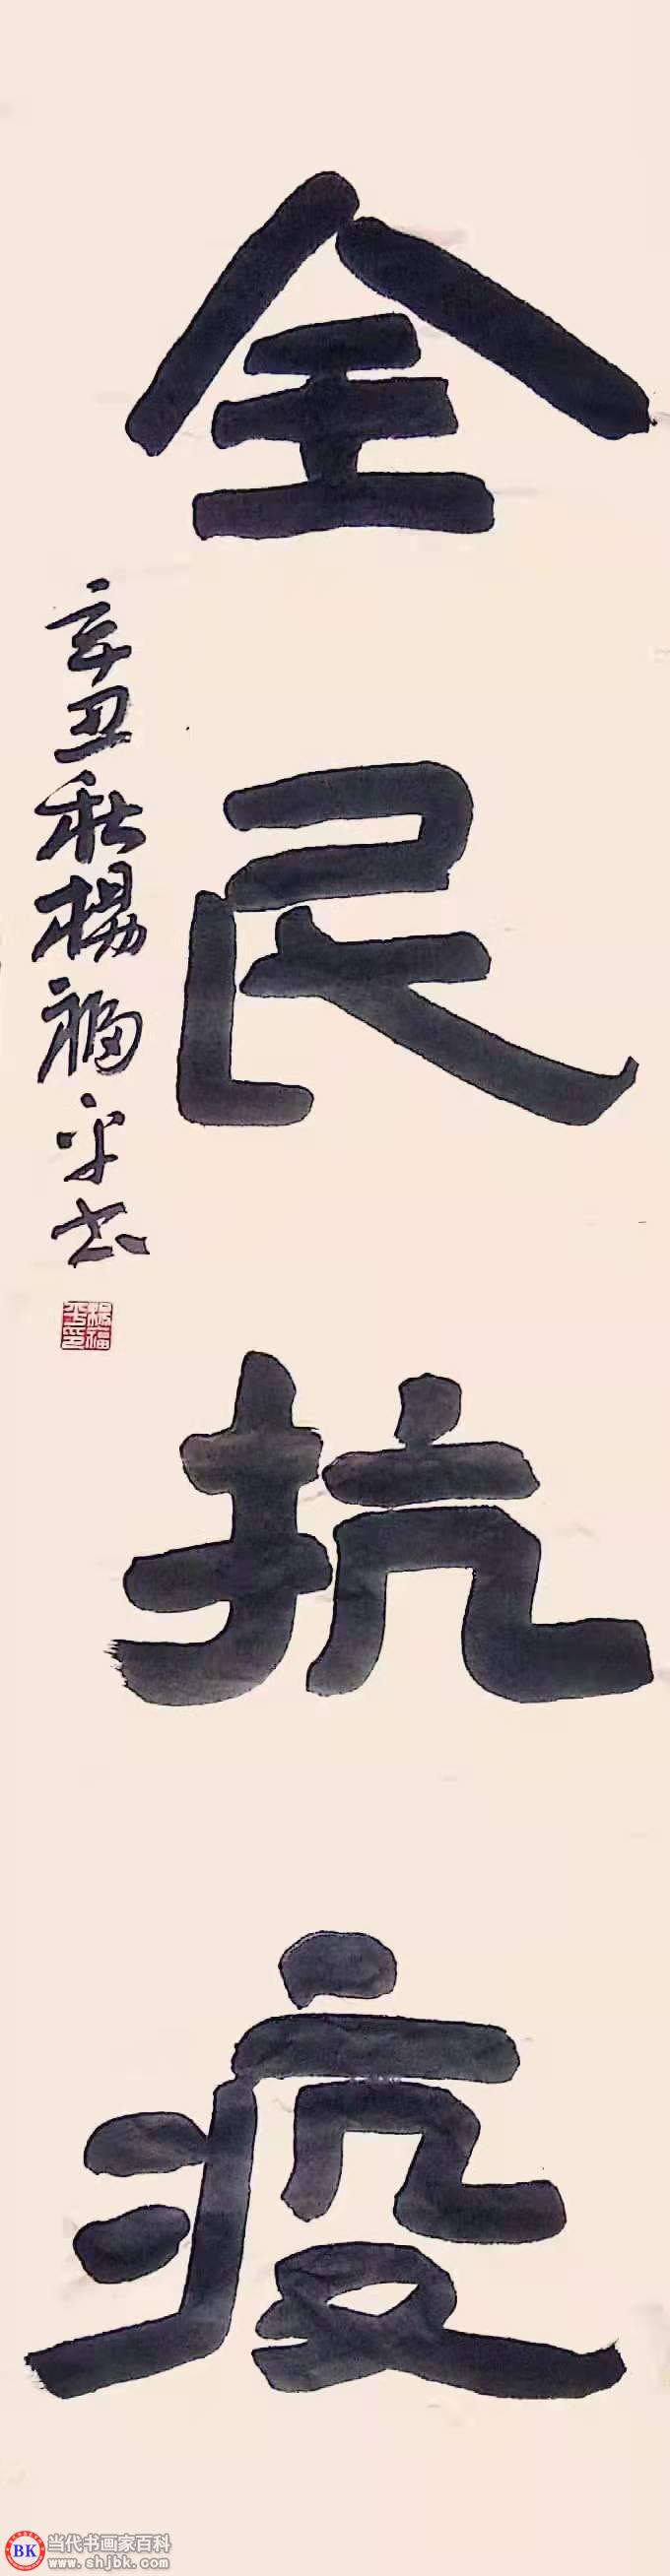 全民抗疫
辛丑秋楊福平书
楊福平印
BK 当代书画家百科
www.shjbk.com